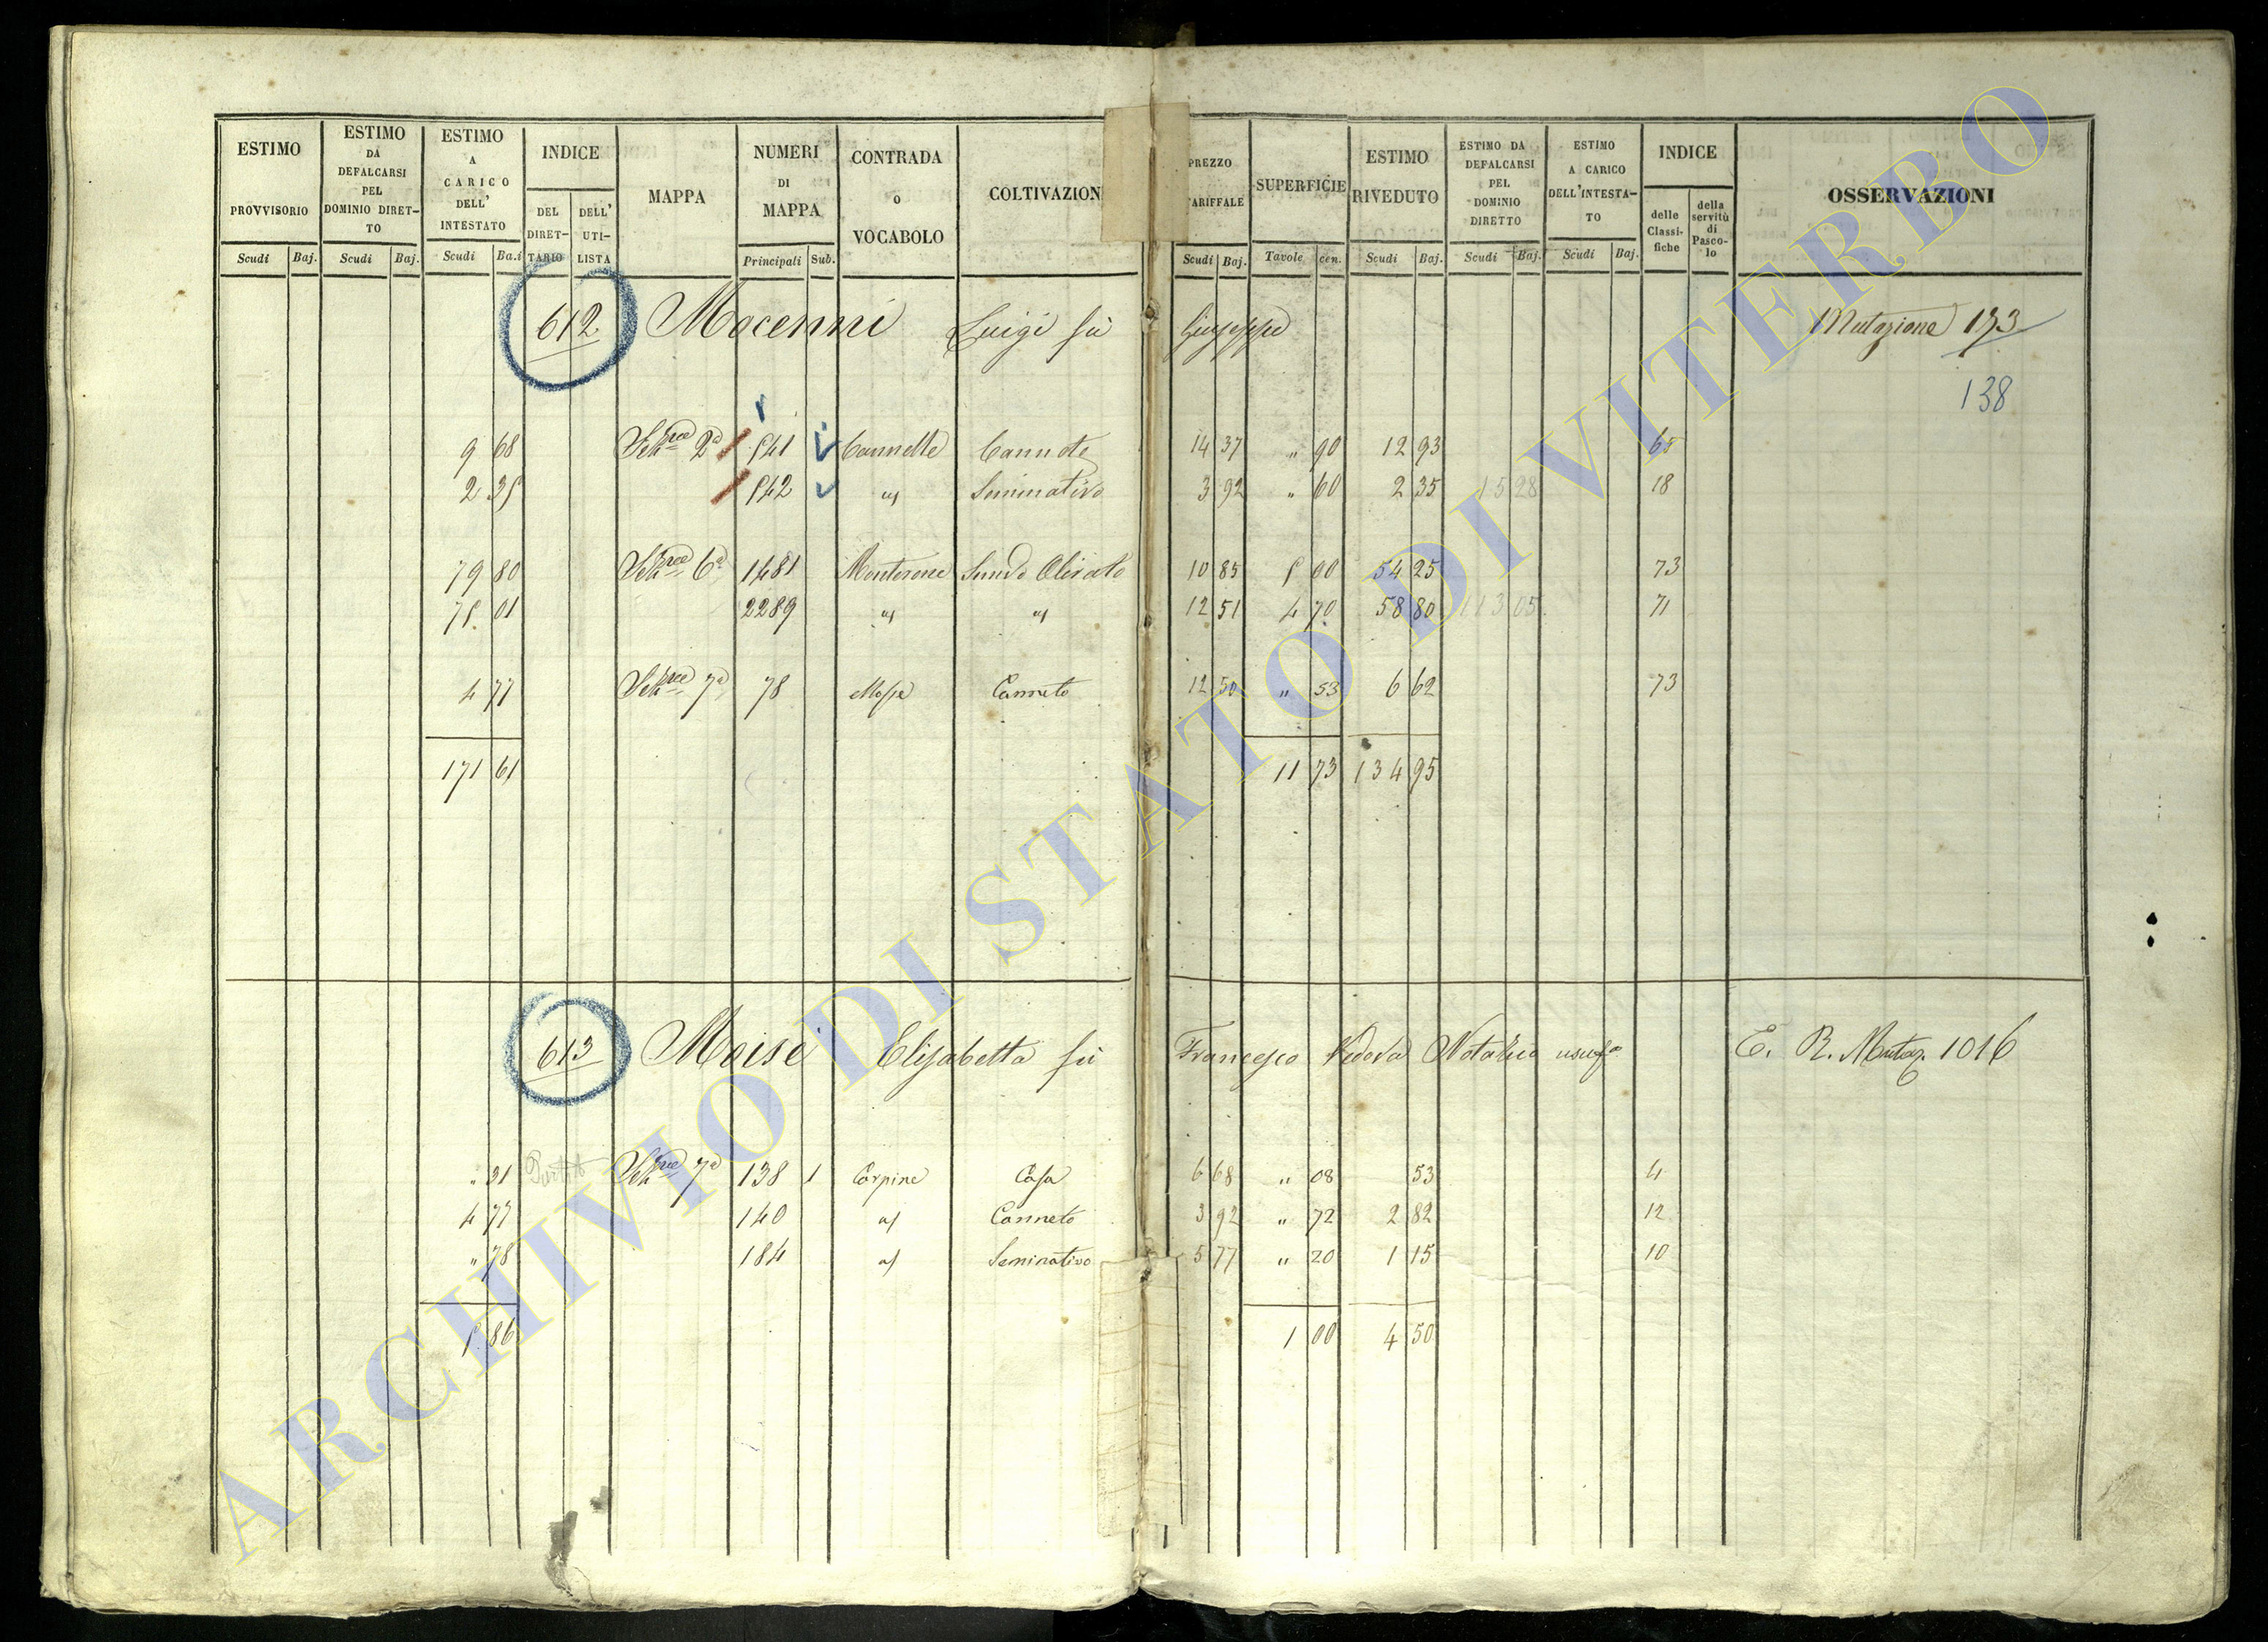 ESTIMO PROVVISORIO
Scudi Baj.
ESTIMO DA DEFALCARSI PEL DOMINIO DIRET-TO
Scudi Baj.
ESTIMO A CARICO DELL' INTESTATO
Scudi Ba.i
INDICE
DEL DIRET-TARIO
DELL' UTI-LISTA
MAPPA
NUMERI DI MAPPA
Principali Sub.
CONTRADA O VOCABOLO
COLTIVAZION
PREZZO ARIFFALE
Scudi Baj.
SUPERFICIE
Tavole cen.
ESTIMO RIVEDUTO
Scudi Baj.
ESTIMO DA DEFALCARSI PEL DOMINIO DIRETTO
Scudi Baj.
ESTIMO A CARICO DELL'INTESTA-TO
Scudi Baj.
INDICE
delle Classi-fiche
della servitù di Pasco-lo
OSSERVAZIONI
612 Mocenni Luigi fù Giuseppe Mutazione 133
138
9 68 2a 541 Cannelle Cannete 14 37 " 90 12 93 65
2 35 542 Seminativo 3 92 " 60 2 35 15 28 18
79 80 6a 1481 Monterone Olivato 10 85 5 00 54 25 73
75 01 2289 12 51 4 70 58 80 113 05 71
4 77 7a 78 Canneto 12 50 " 53 6 62 73
171 61 11 73 134 95
613 Moisè Elisabetta fù Francesco Vedova usufa E. R. Mutaz. 1016
" 31 7a 138 1 Carpine Casa 6 68 " 08 53 4
4 77 140 Canneto 3 92 " 72 2 82 12
" 78 184 Seminativo 5 77 " 20 1 15 10
5 86 1 00 4 50
ARCHIVIO DI STATO DI VITERBO